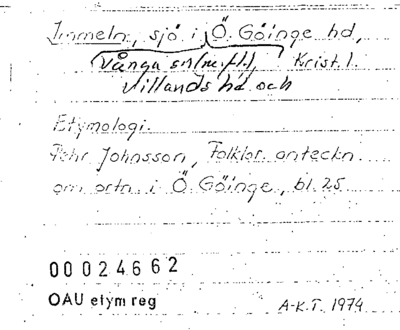 Immeln, sjö i Ö. Göinge hd,
Vånga sn (m.fl.), Krist. l.
Villands hd och
Etymologi.
Pehr Johnsson, Folklor. anteckn.
om ortn. i Ö. Göinge, bl. 25
00024662
OAU etym reg
A-K.T. 1974